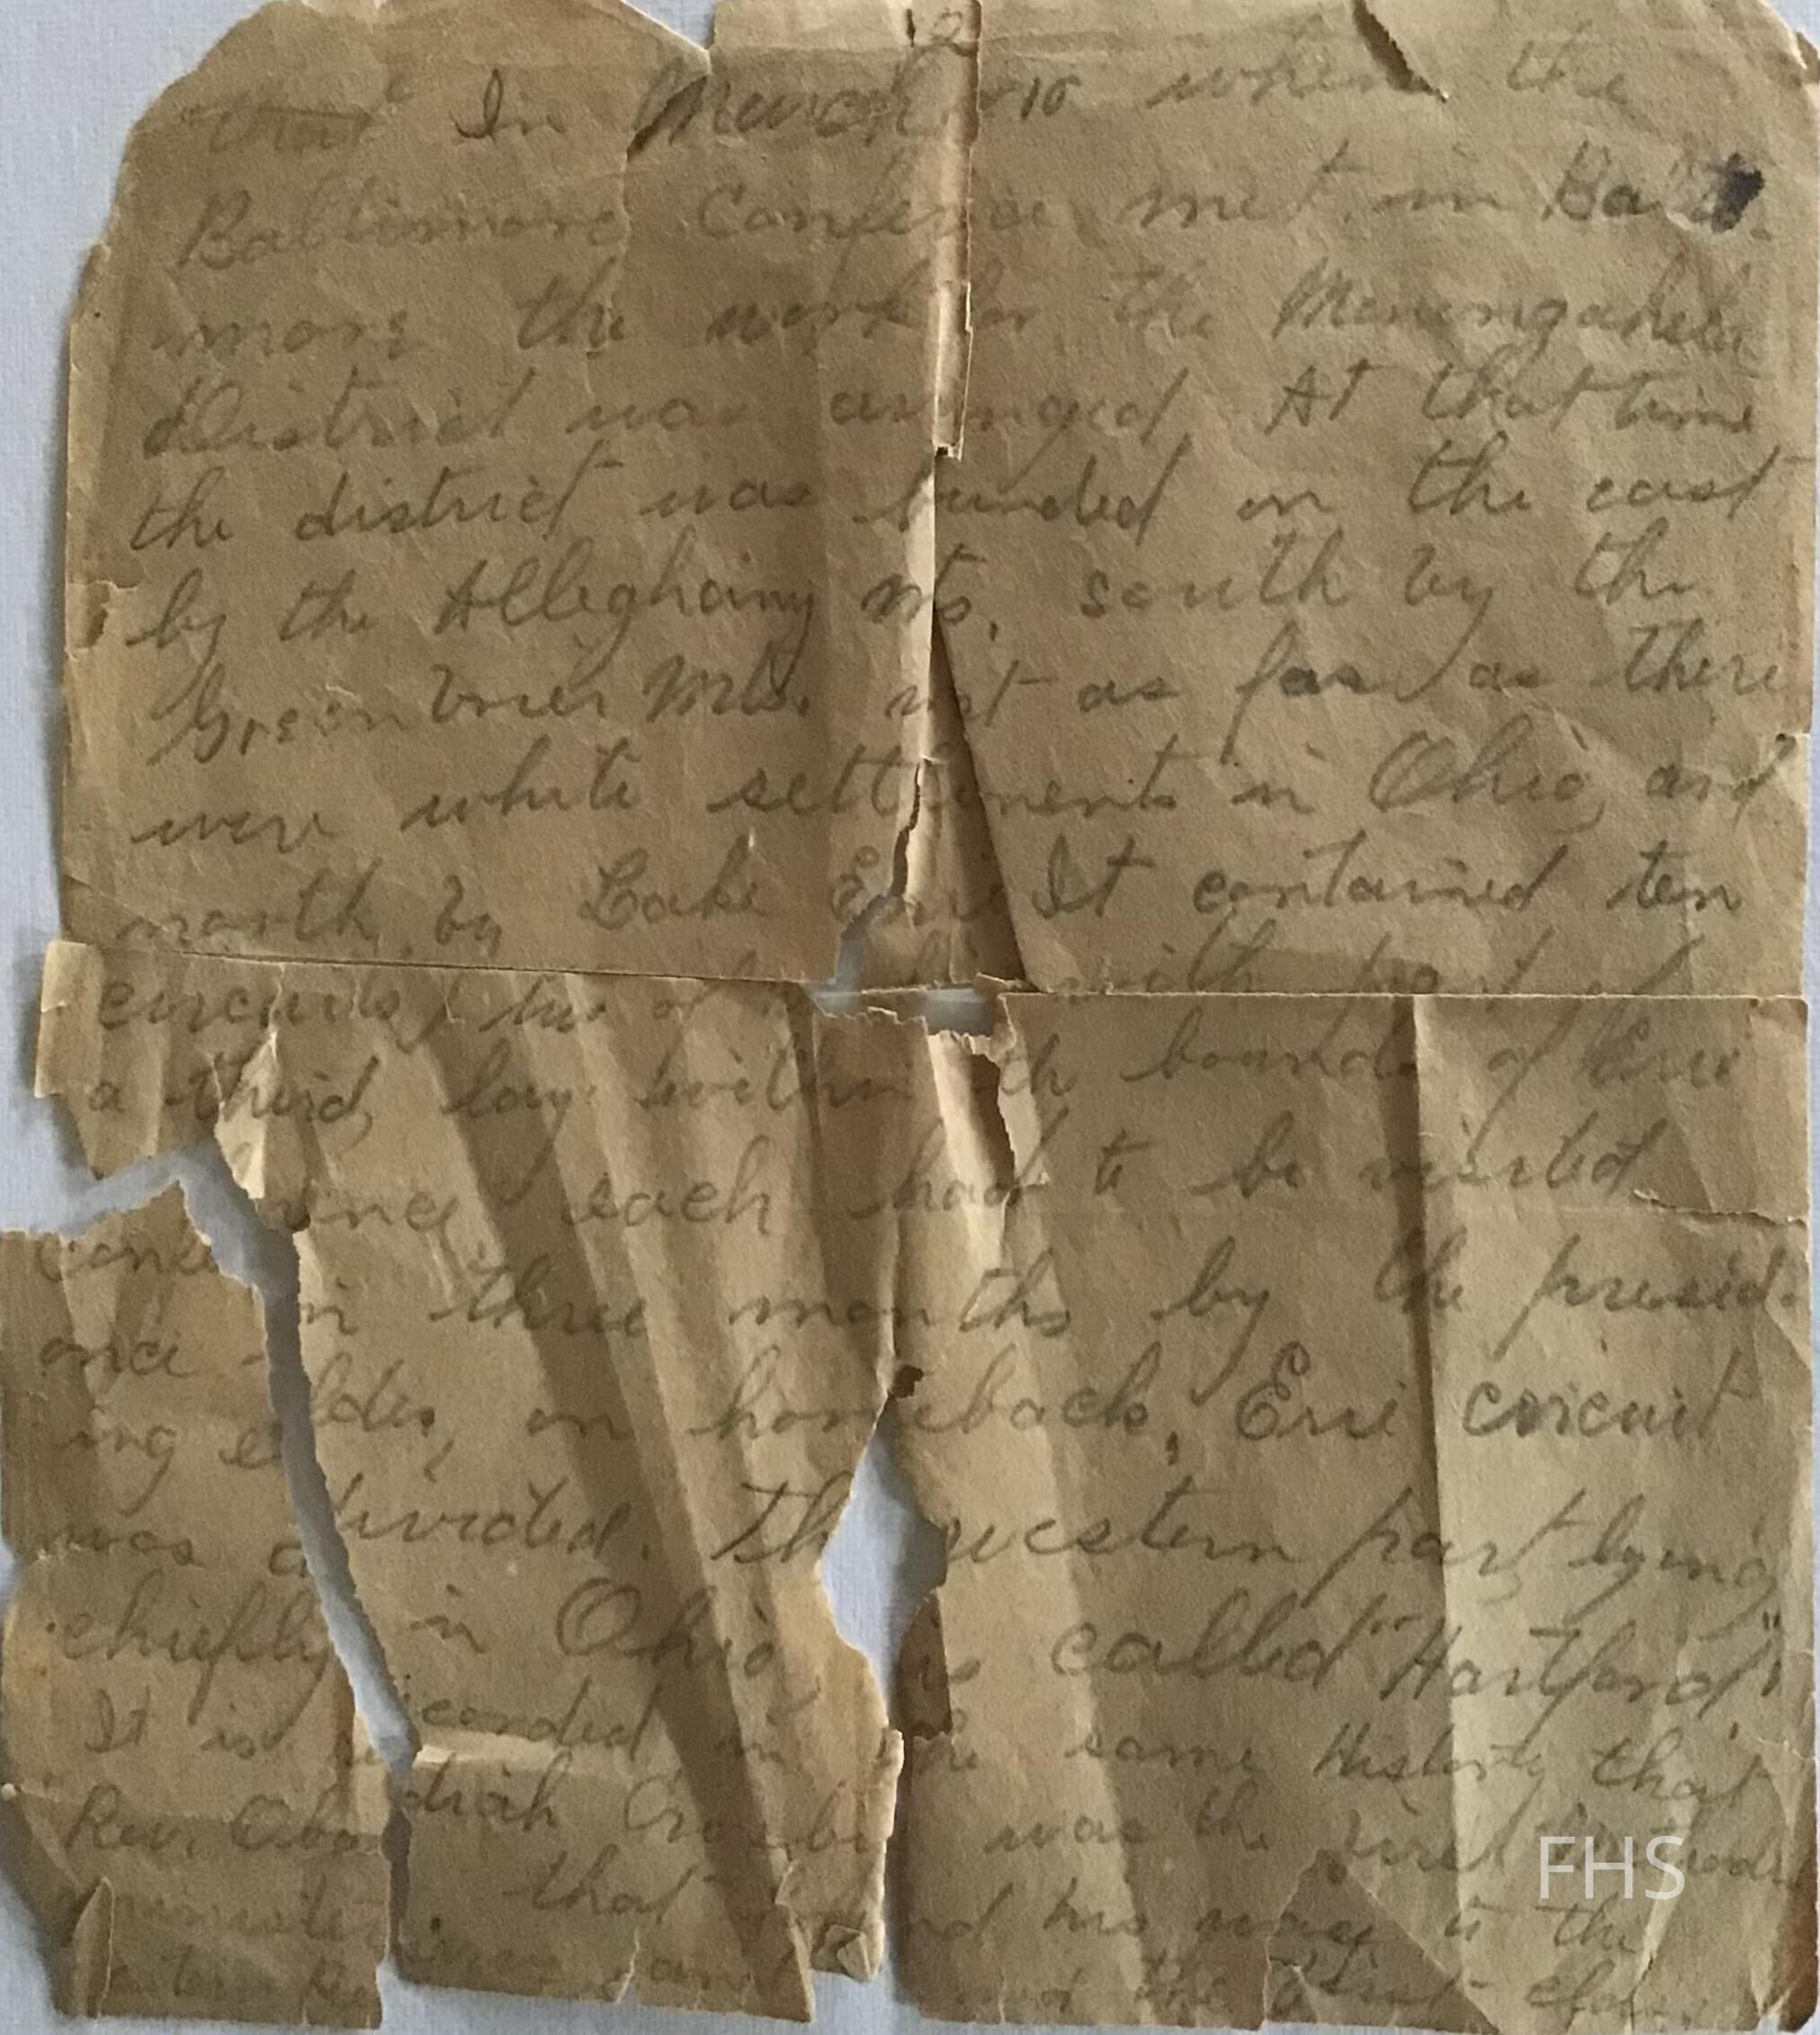 2
"that" In March 1810 when the
Baltimore Conference met in Balti-
more the work for the Monongahela
District was arranged At that time
the district was bounded on the east
by the Alleghainy Mts. south by the
Green brier Mts. west as far as there
were white settlements in Ohio, and
north, by Lake Erie It contained ten
circuits, two of with part of
a third, lay within the bounds of Erie
each had to be visited
once in three months by the presid-
ing elder, on horseback, Erie circuit
was divided. The western part lying
chiefly in Ohio is called "Hartford"
It is recorded in the same History that
Rev. Obadiah Crosby was the first
minister that found his way to the
and the first
FHS